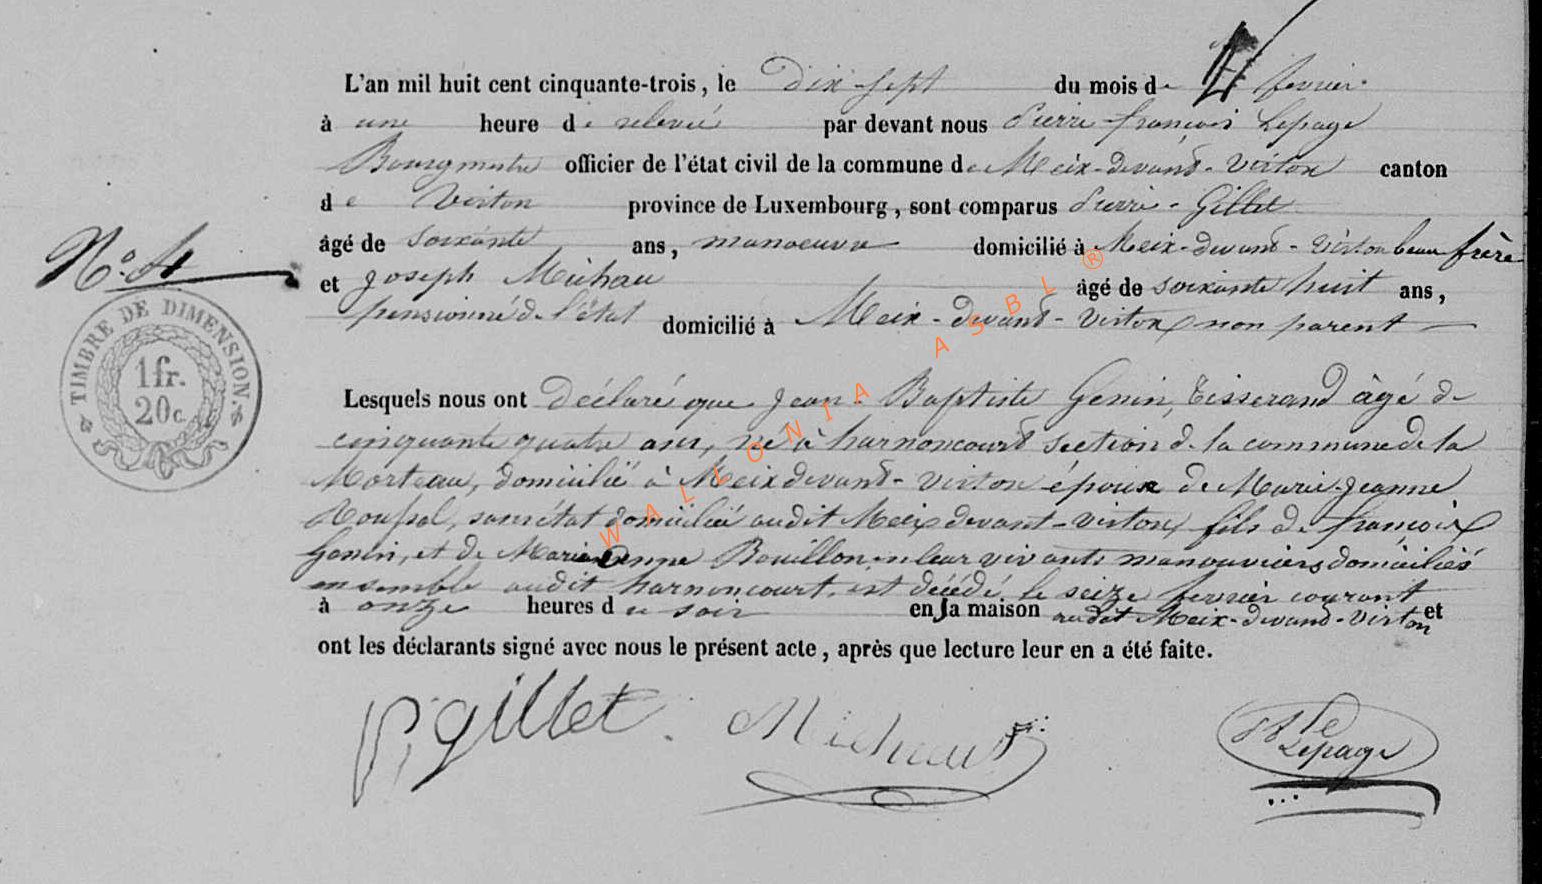 L'an mil huit cent cinquante-trois, le dix-sept du mois de fevrier
à une heure de relevée par devant nous Pierre françois Lepage
Bourgmestre officier de l'état civil de la commune de Meix-devant-Virton canton
de Virton province de Luxembourg, sont comparus Pierre Gillet
âgé de soixante ans, manoeuvre domicilié à Meix-devant-Virton beau frère
N.o 4
et Joseph Michau âgé de soixante huit ans,
pensionné de l'état domicilié à Meix-devant-Virton non parent
TIMBRE DE DIMENSION.
1 fr.
20 c.
Lesquels nous ont déclaré que Jean-Baptiste Genin, Tisserand âgé de
cinquante quatre ans, né à harnoncourt section de la commune de la
Morteau, domicilié à Meix devant-Virton époux de Marie-Jeanne
Roussel, sans état domiciliée audit Meix devant-Virton, fils de françois
Genin, et de Marie anne Bouillon en leur vivant manouvriers domiciliés
ensemble audit harnoncourt, est décédé le seize fevrier courant
à onze heures du soir en sa maison audit Meix-devant-Virton et
ont les déclarants signé avec nous le présent acte, après que lecture leur en a été faite.
P. gillet Michau Lepage
WALLONIA ASBL ®